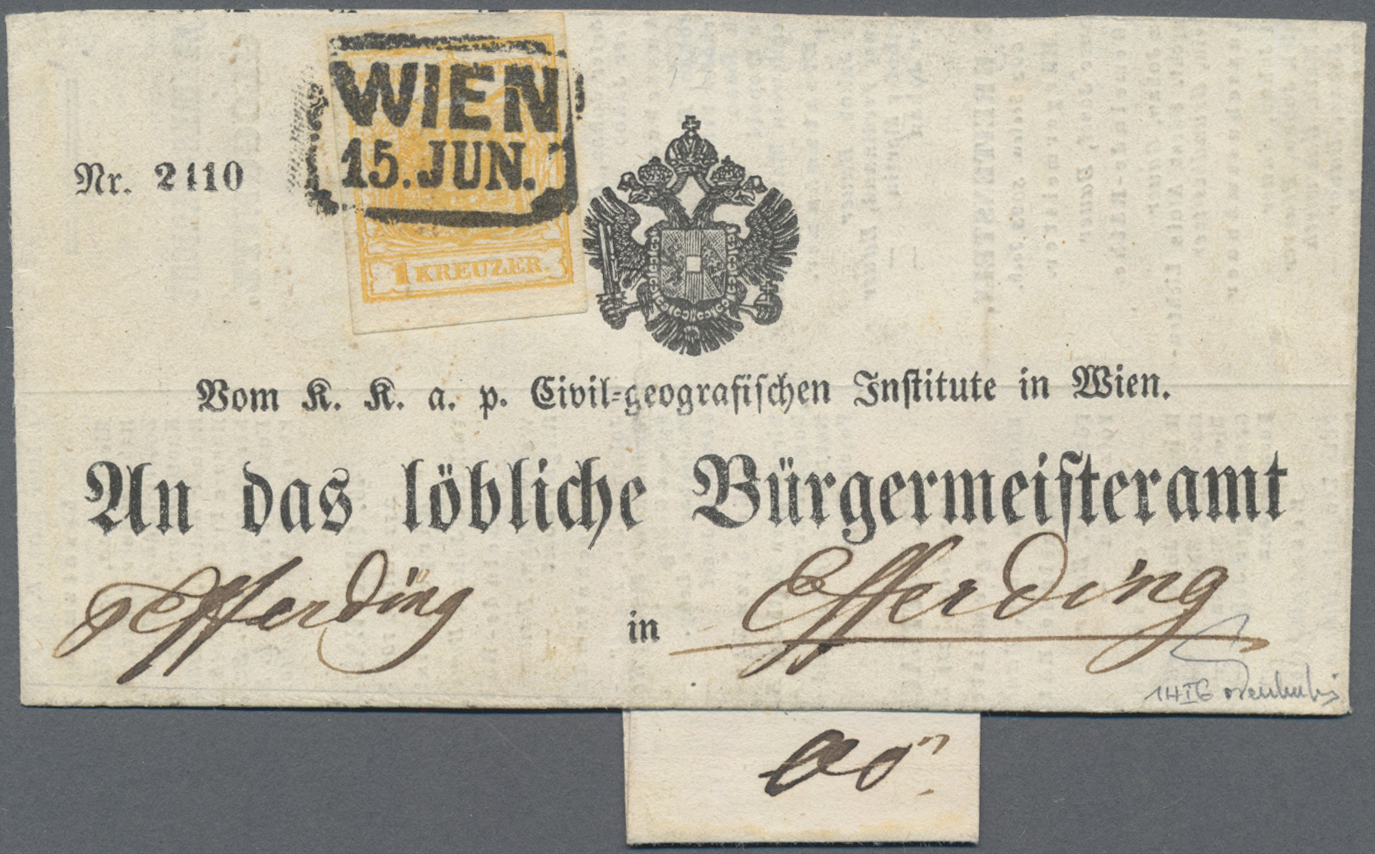 WIEN
15. JUN.
1 KREUZER.
Nr. 2110
Vom K. K. a. p. Civil-geografischen Institute in Wien.
An das löbliche Bürgermeisteramt
Efferding in Efferding